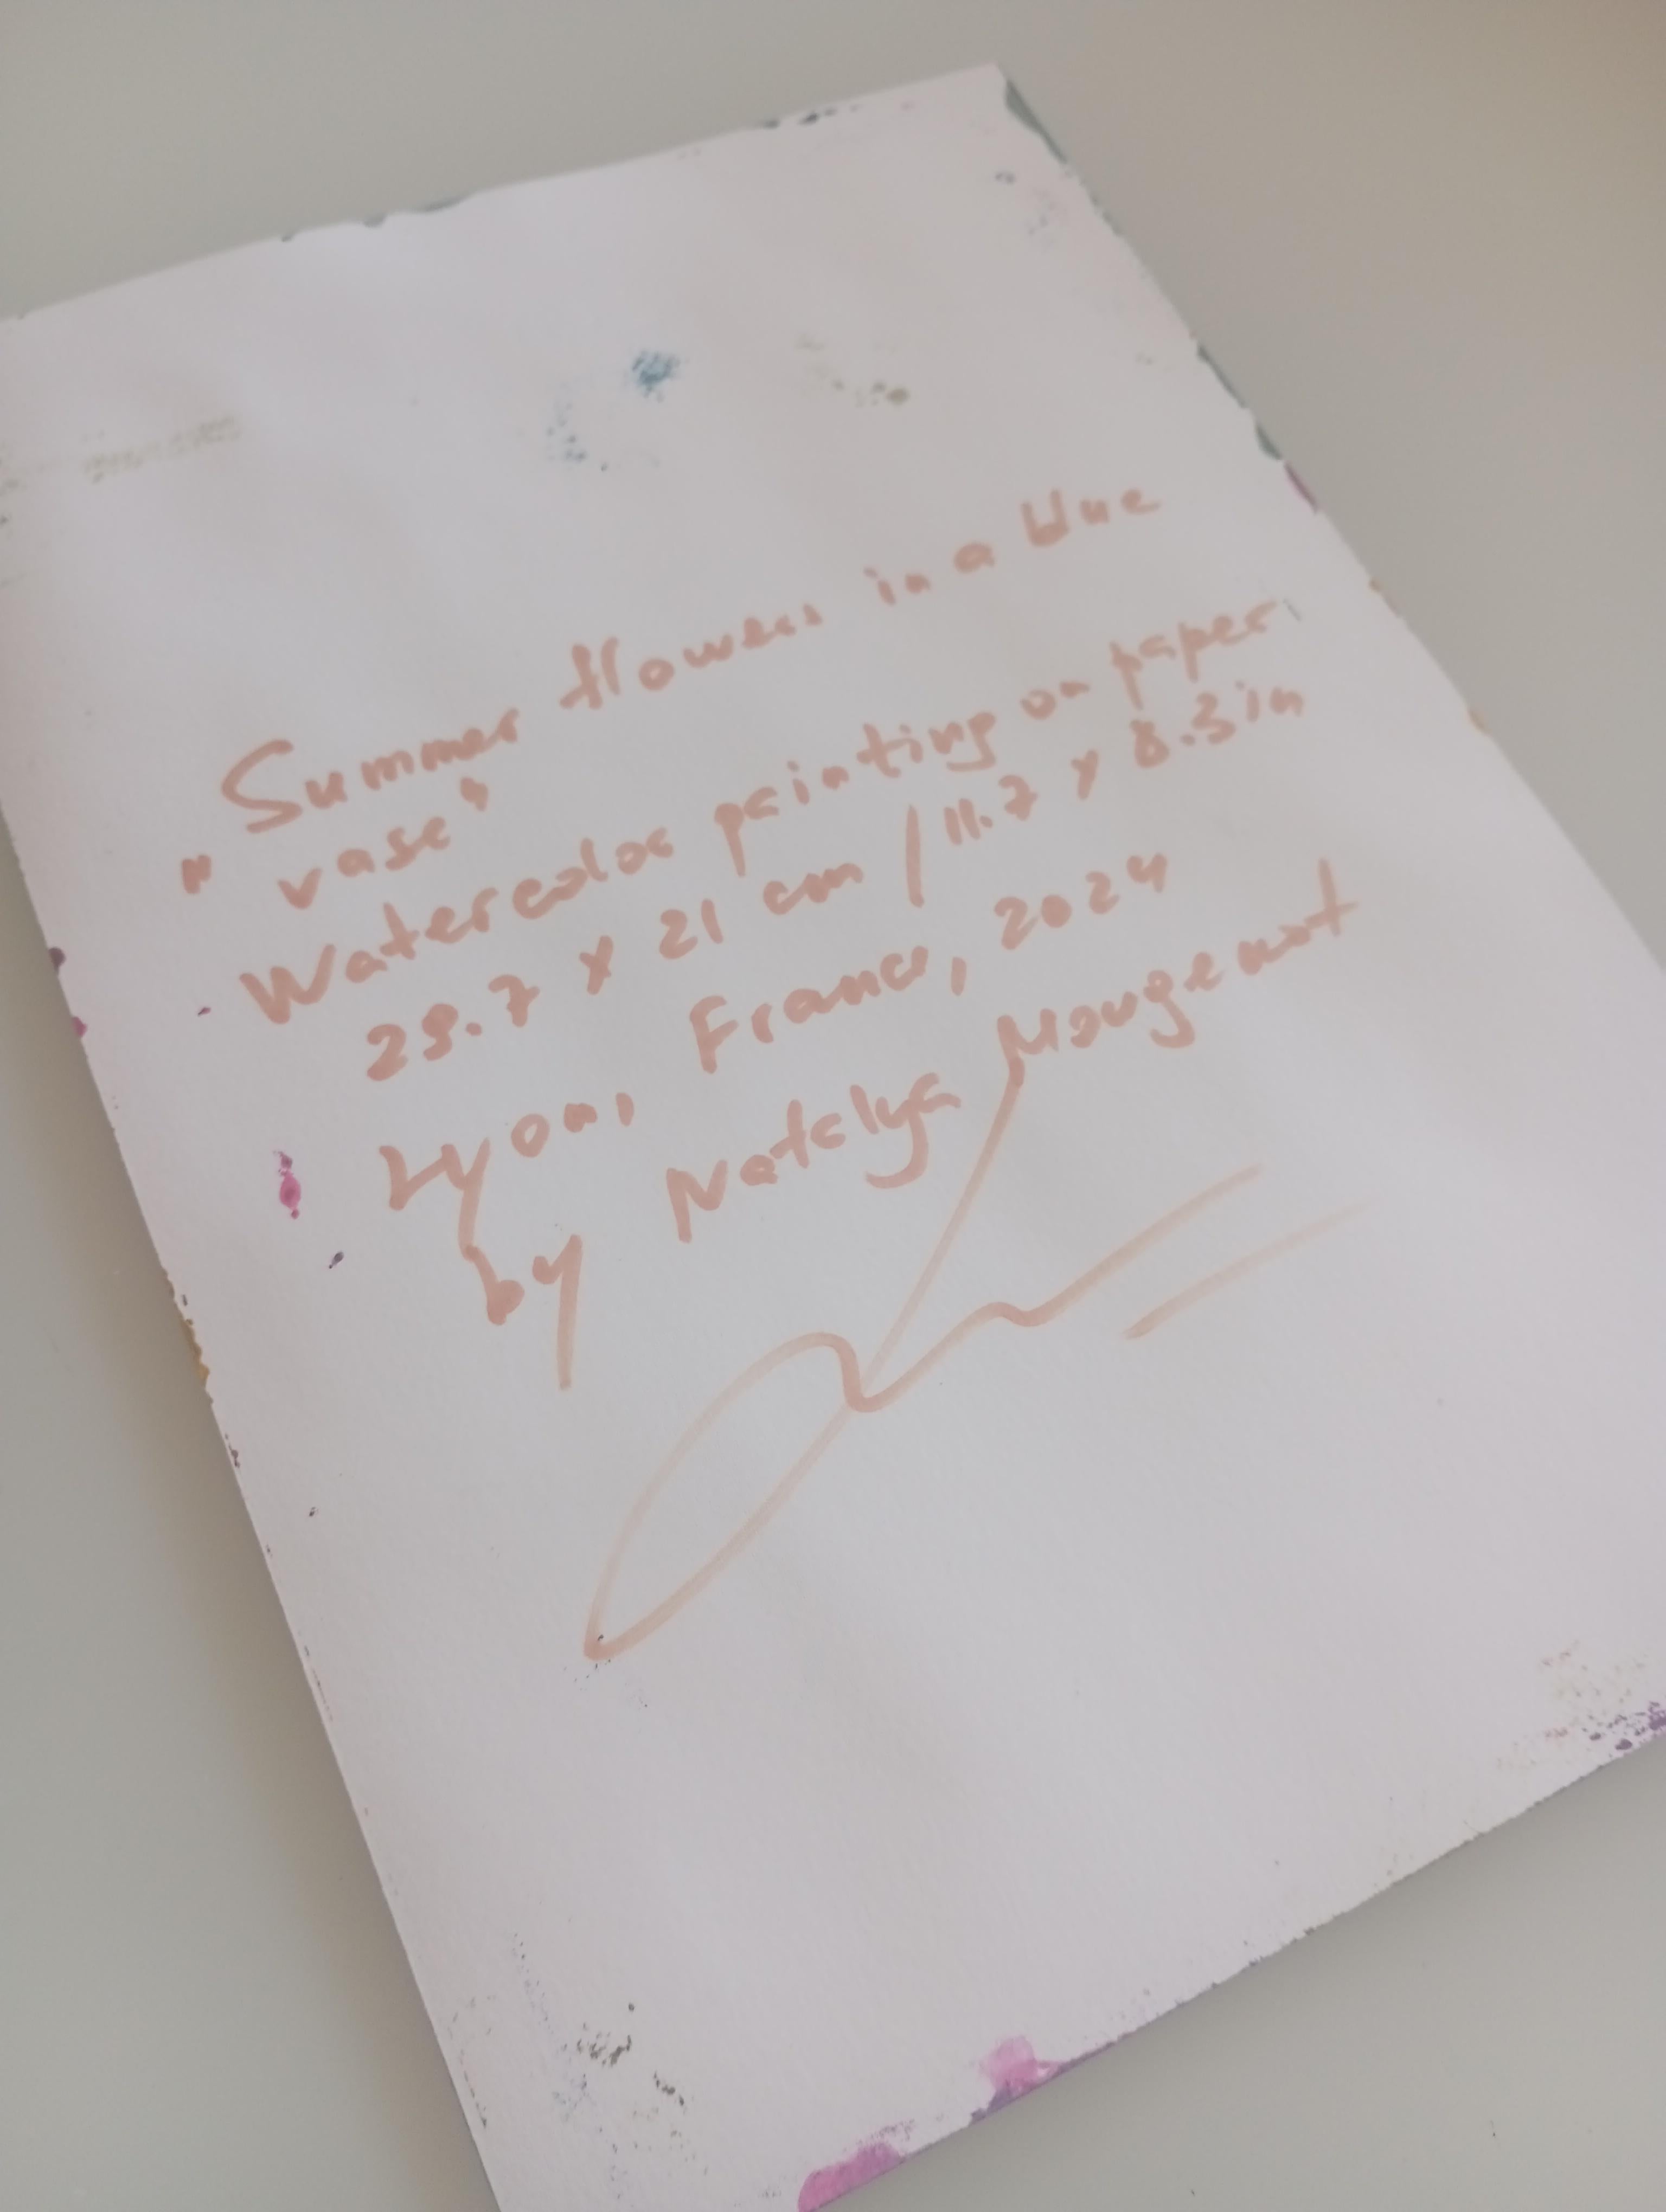 "Summer flowers in a blue
vase"
Watercolor painting on paper
29.7 x 21 cm / 11.7 x 8.3 in
Lyon, France, 2024
by Natalya Mougenot